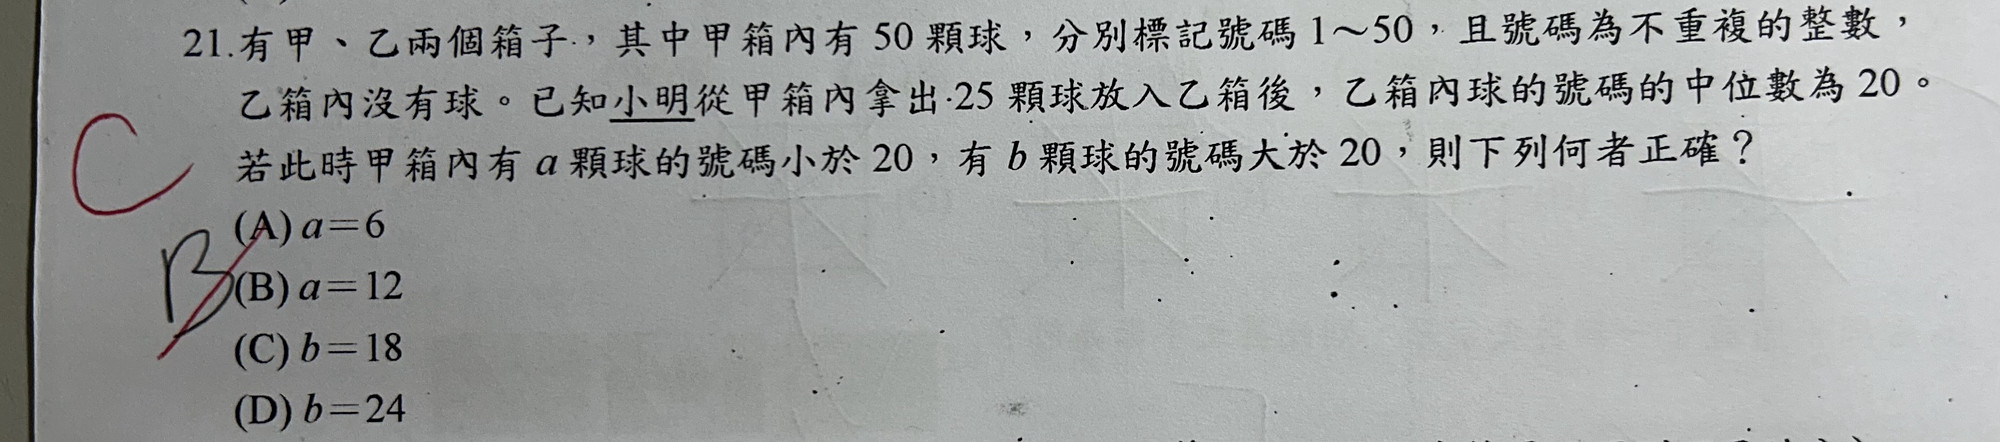 21.有甲、乙兩個箱子，其中甲箱內有 50 顆球，分別標記號碼 1～50，且號碼為不重複的整數，
乙箱內沒有球。已知小明從甲箱內拿出 25 顆球放入乙箱後，乙箱內球的號碼的中位數為 20。
C
若此時甲箱內有 a 顆球的號碼小於 20，有 b 顆球的號碼大於 20，則下列何者正確？
(A) a＝6
B
(B) a＝12
(C) b＝18
(D) b＝24